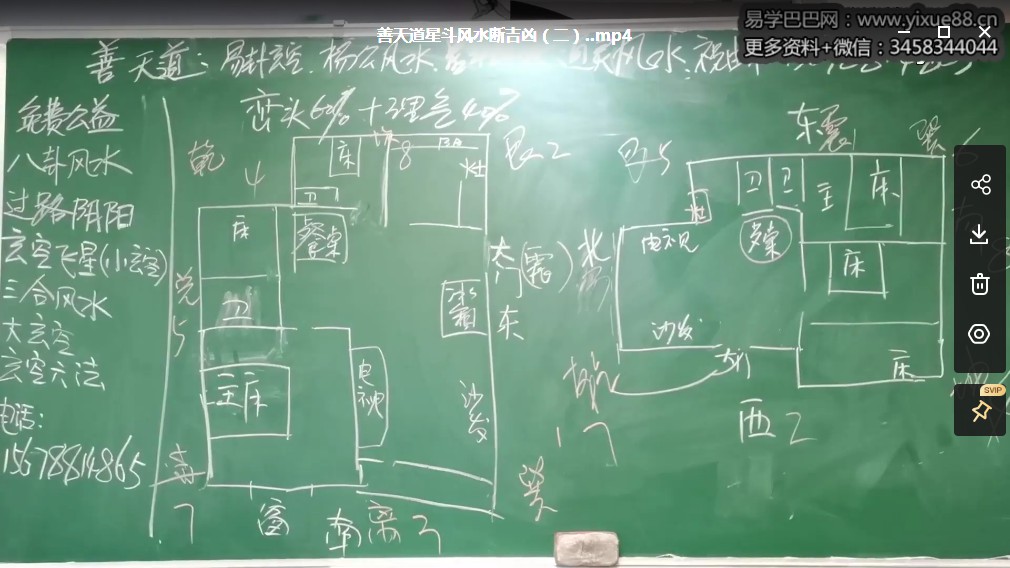 善天道星斗风水断吉凶（二）..mp4
易学巴巴网：www.yixue88.cn
更多资料+微信：3458344044
善天道：易卦玄空.杨公风水.
峦头60%+理气40%
免费公益
八卦风水
过路阴阳
玄空飞星(小玄空)
三合风水
大玄空
玄空六法
电话：
15678814865
乾
4
床
8
灶
艮2
床
餐桌
大门
兑
5
卫
冰箱
东
主床
电视
沙发
巽
7
窗
南离3
东震
巽6
艮5
灶
卫
卫
主
床
北
电视
餐桌
床
沙发
大门
床
乾
17
西2
SVIP